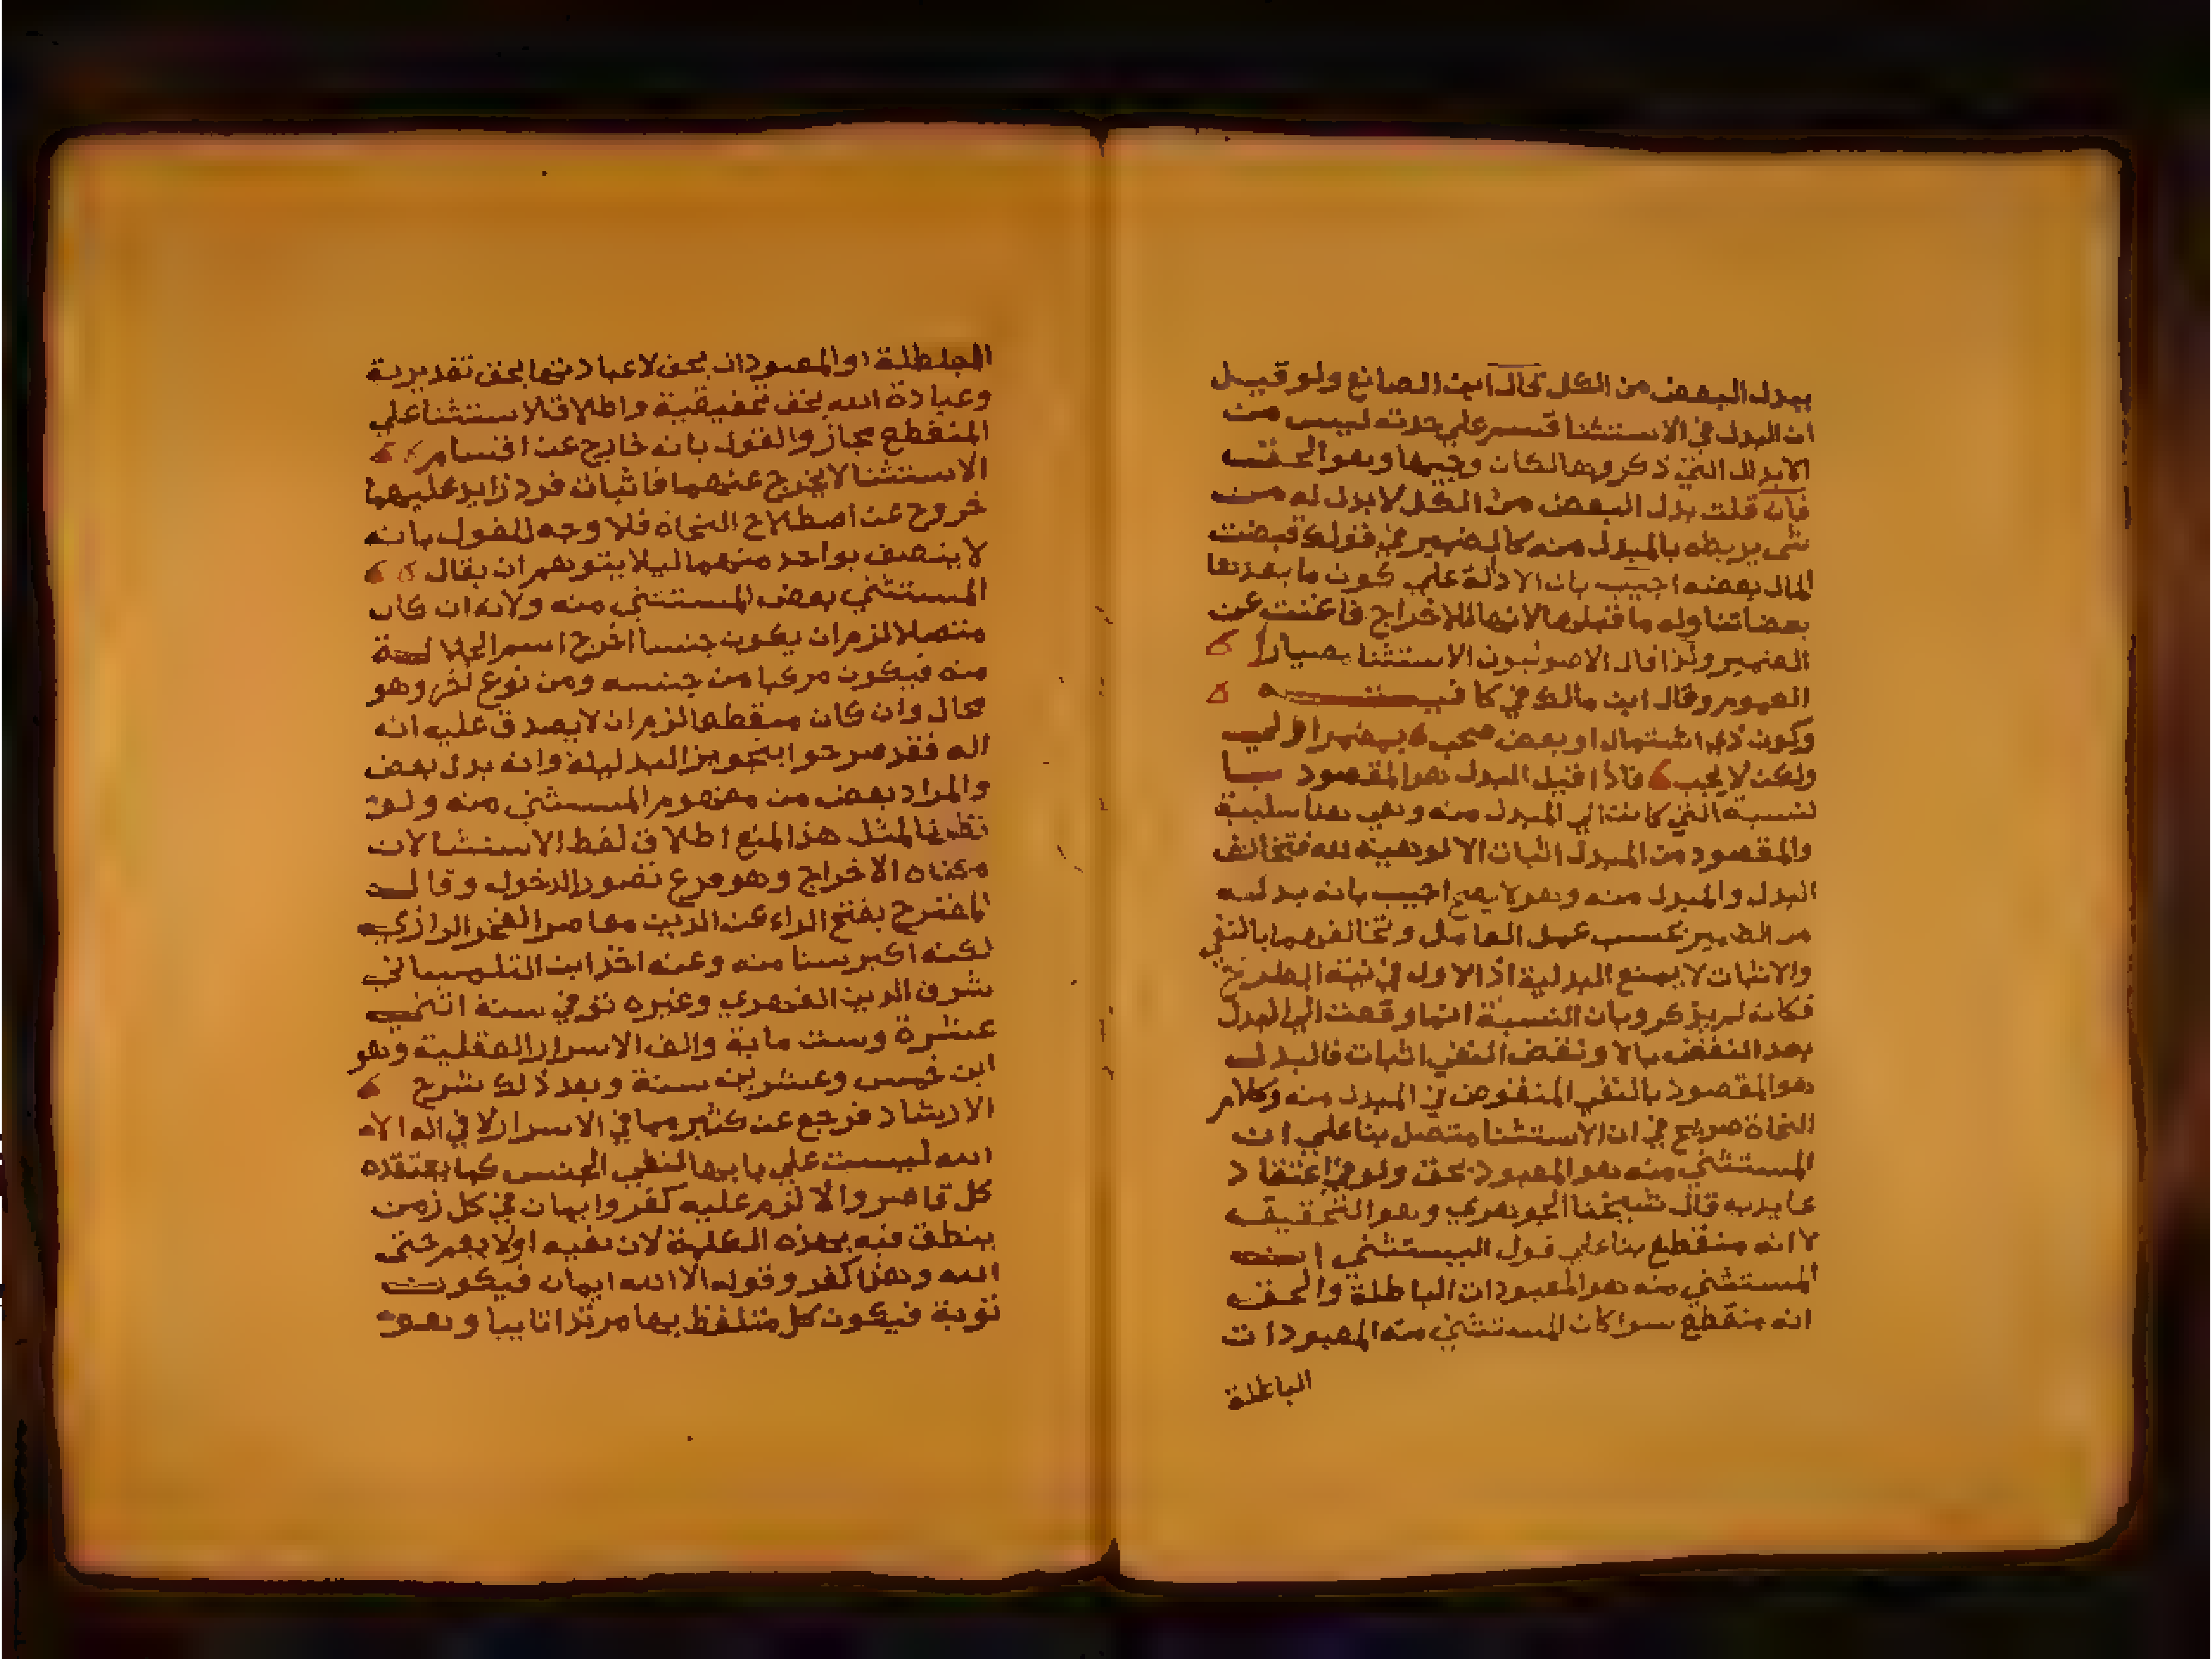 ببدل البعض من الكل قال ابن الصانع ولو قيل
ان البدل في الاستثنا قسم علي حدته ليس من
الابدال التي ذكروها لكان وجيها وهو الحق
فان قلت بدل البعض من الكل لابد له من
شي يربطه بالمبدل منه كالضمير في قوله قبضت
المال بعضه اجيب بان الادلة علي كون ما بعدها
بعضا تناوله ما قبلها لانها للاخراج فاغنت عن
الضمير ولذا قال الاصوليون الاستثنا معيار
العموم وقال ابن مالك في كافيته
وكون ذي اشتمال او بعض صحب بمضمر اولي
ولكن لا يجب فاذا قيل البدل هو المقصود
لنسبة التي كانت الي المبدل منه وهي هنا سلبية
والمقصود من البدل اثبات الالوهية لله فتخالف
البدل والمبدل منه وهو لا يصح اجيب بانه بدل
من الضمير بحسب عمل العامل وتخالفهما بالنفي
والاثبات لا يمنع البدلية اذ الاول في نية الطرح
فكانه لم يذكر وبان النسبة انما وقعت الي البدل
بعد النقض بالا ونقض النفي اثبات فالبدل
هو المقصود بالنفي المنقوض في المبدل منه وكلام
النحاة صريح في ان الاستثنا متصل بنا علي ان
المستثني منه هو المعبود بحق ولو في اعتقاد
عابديه قال شيخنا الجوهري وهو التحقيق
لا انه منقطع بنا علي قول
المستثني منه هو المعبودات الباطلة والحق
انه منقطع سوا كان المستثني منه المعبودات
الباطلة
الباطلة او المعبودات بحق لا عبادتها بحق تقديرية
وعبادة الله بحق تحقيقية واطلاق الاستثنا علي
المنقطع مجاز والقول بانه خارج عن اقسام
الاستثنا لا يخرج عنهما فاثبات فرد زايد عليهما
خروج عن اصطلاح النحاة فلا وجه للقول بانه
لا يتصف بواحد منهما ليلا يتوهم ان يقال
المستثني بعض المستثني منه ولانه ان كان
متصلا لزم ان يكون جنسا اخرج اسم الجلالة
منه فيكون مركبا من جنسه ومن نوع اخر وهو
محال وان كان منقطعا لزم ان لا يصدق عليه انه
اله فقد صرحوا بتجويز البدلية وانه بدل بعض
والمراد بعض من مفهوم المستثني منه ولو
نظرنا لمثل هذا المنع اطلاق لفظ الاستثنا لان
معناه الاخراج وهو فرع تصور الدخول وقال
المقترح بفتح الراء عز الدين معاصر الفخر الرازي
لكنه اكبر سنا منه وعنه اخذ ابن التلمساني
شرف الدين الفهري وغيره توفي سنة اثني
عشرة وست ماية والف الاسرار العقلية وهو
ابن خمس وعشرين سنة وبعد ذلك شرح
الارشاد فرجع عن كثير مما في الاسرار لا في اله الا
الله ليست علي بابها لنفي الجنس كما يعتقده
كل قاصر والا لزم عليه كفر وايمان في كل زمن
ينطق فيه بهذه الكلمة لان نفيه اولا يعم حتي
الله وهذا كفر وقوله الا الله ايمان فيكون
توبة فيكون كل متلفظ بها مرتدا تايبا وهو